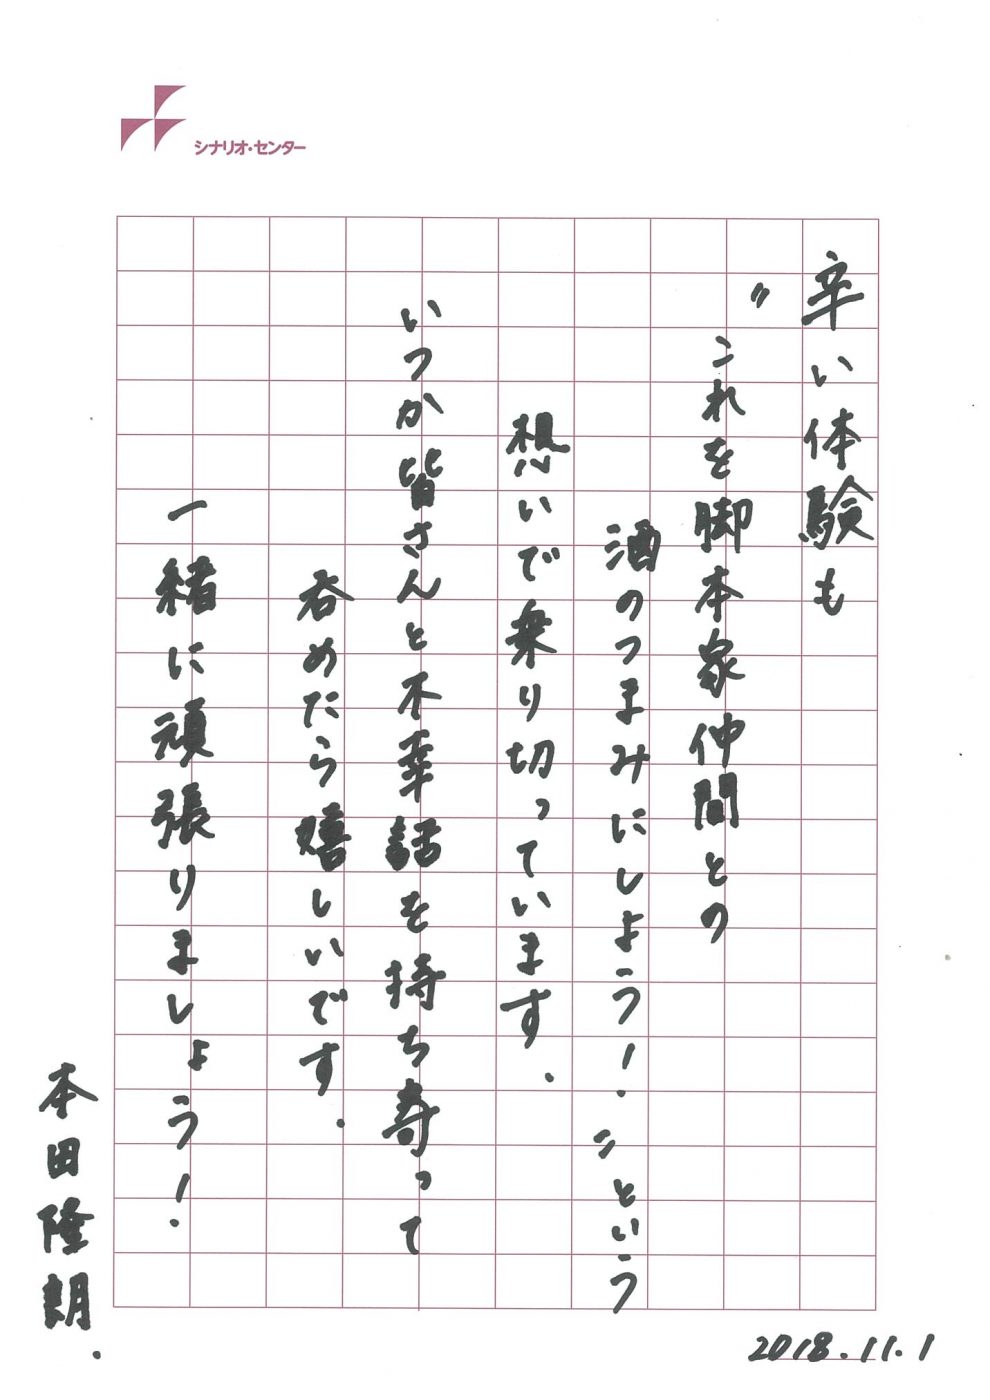 シナリオ・センター
辛い体験も
〃これを脚本家仲間との
酒のつまみにしよう！〃という
想いで乗り切っています.
いつか皆さんと不幸話を持ち寄って
呑めたら嬉しいです.
一緒に頑張りましょう！.
本田隆朗.
2018.11.1